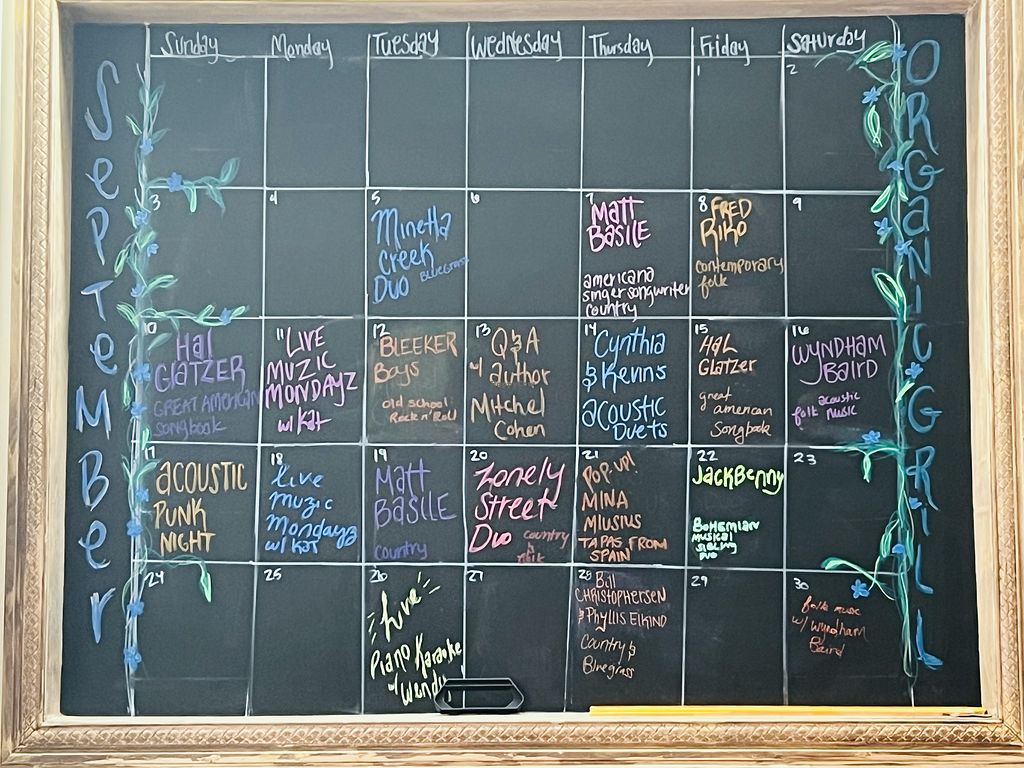 September
ORGANIC GRILL
Sunday Monday Tuesday Wednesday Thursday Friday Saturday
1
2
3
4
5
Minetta
Creek
Duo Bluegrass
6
7
Matt
Basile
americana
singer songwriter
country
8
FRED
Riko
contemporary
folk
9
10
Hal
GlatZER
GREAT AMERICAN
songbook
11
LIVE
MUZIC
MONDAYZ
w/ Kat
12
BLEEKER
Boys
old school
Rock n' Roll
13
Q & A
w/ author
Mitchel
Cohen
14
Cynthia
& Kenns
acoustic
Duets
15
Hal
Glatzer
great
american
Songbook
16
WYNDHAM
Baird
acoustic
folk music
17
acoustic
PUNK
NIGHT
18
Live
muzic
Mondayz
w/ Kat
19
Matt
BASILE
country
20
Lonely
Street
Duo country
&
21
POP UP!
MINA
MIUSIUS
TAPAS FROM
SPAIN
22
JackBenny
Bohemian
musical
sibling
duo
23
24
25
26
Live
Piano Karaoke
w/ Wendy
27
28
Bill
CHRISTOPHERSEN
& Phyllis Elkind
Country &
Bluegrass
29
30
folk music
w/ Wyndham
Baird